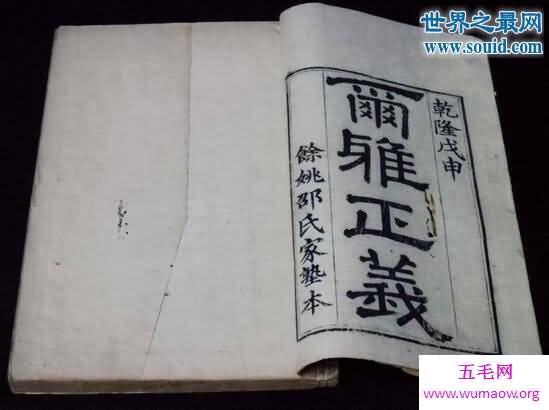 世界之最网
www.souid.com
乾隆戊申
爾雅正義
餘姚邵氏家塾本
五毛网
www.wumaow.org